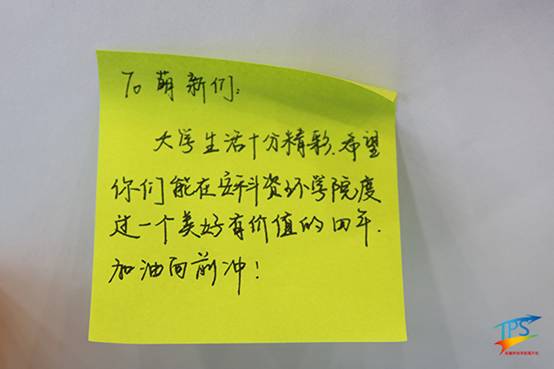 To 萌新们:
大学生活十分精彩.希望
你们能在安科资环学院度
过一个美好有价值的四年.
加油向前冲!
TPS